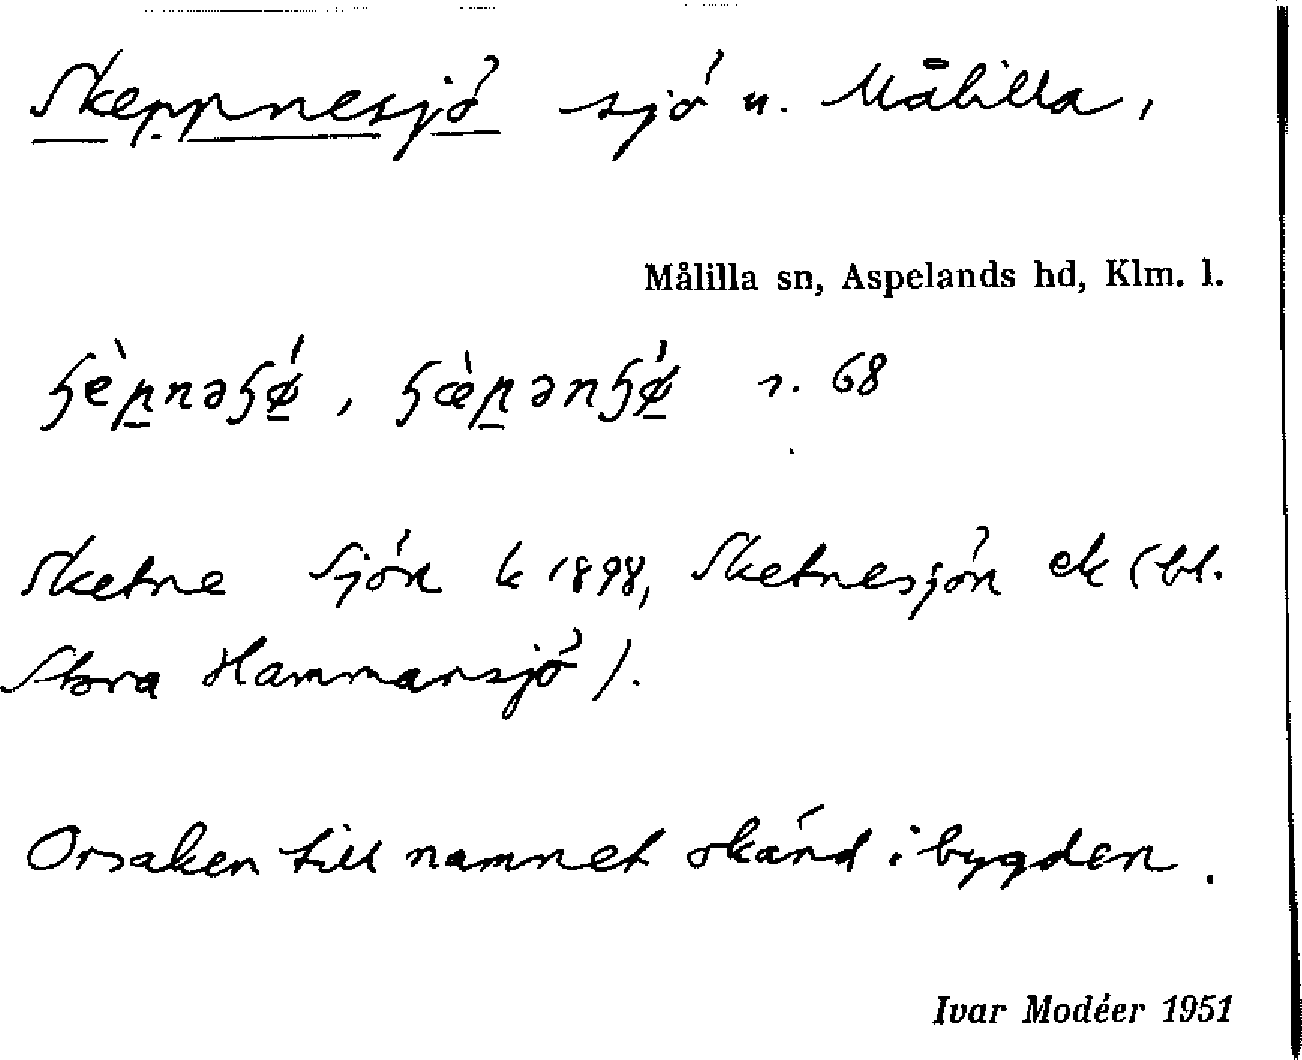 Skeppnesjö sjö n. Målilla,
Målilla sn, Aspelands hd, Klm. l.
ɧèp̠nəɧǿ̠, ɧæ̀p̠ənɧǿ̠ s. 68
Sketne Sjön k 1898, Sketnesjön ek (bl.
Stora Hammarsjö).
Orsaken till namnet okänd i bygden.
Ivar Modéer 1951